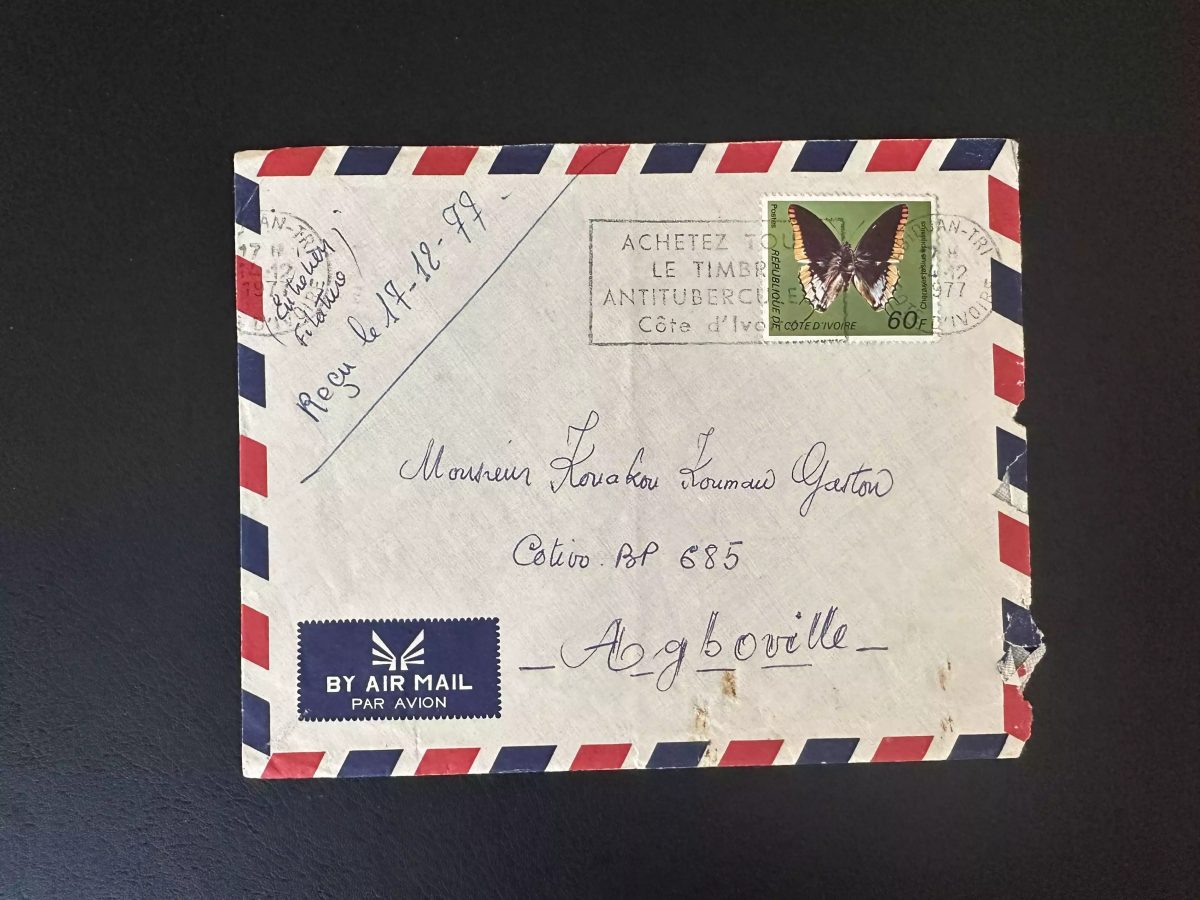 AN-TRI
17 H
12
197
D'IVOIRE
Reçu le 17-12-77
ACHETEZ TOU
LE TIMBR
ANTITUBERCULE
Côte d'Ivo
Postes
RÉPUBLIQUE DE CÔTE D'IVOIRE
60F
AN-TRI
12
1977
D'IVOIRE
Monsieur Kouakou Koumau Gaston
Cotivo. BP 685
Agboville
BY AIR MAIL
PAR AVION